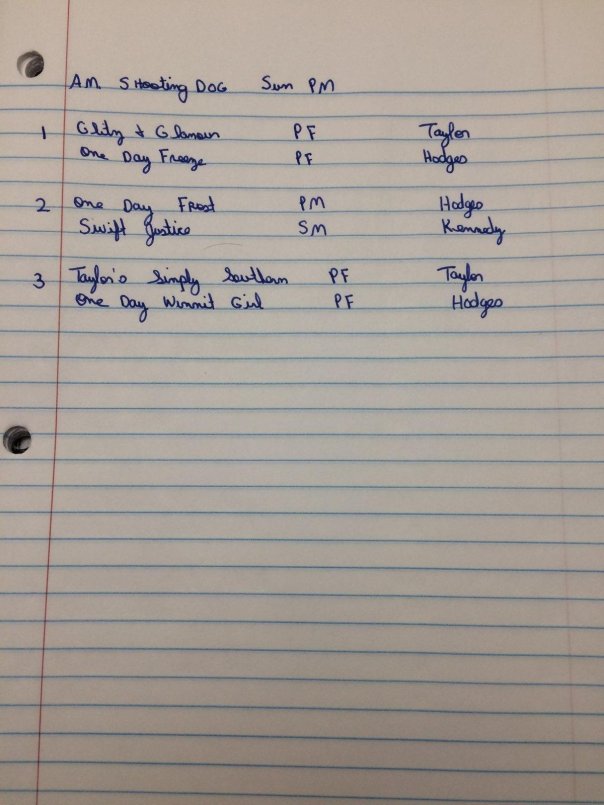 AM SHooting DOG Sun PM
1 Glitz & Glamour PF Taylor
One Day Freeze PF Hodges
2 One Day Frost PM Hodges
Swift Justice SM Kennedy
3 Taylor's Simply Southern PF Taylor
One Day Winnit Girl PF Hodges